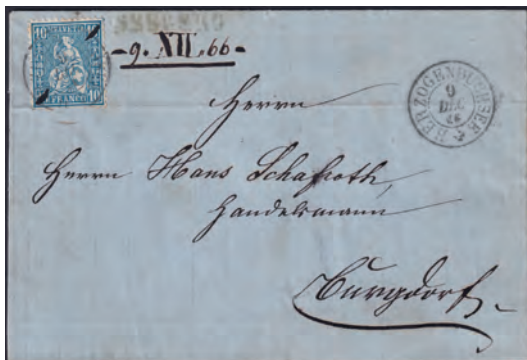 10 HELVETIA 10
FRANCO
-9. XII. 66-
HERZOGENBUCHSEE
9
DEC
66
Herrn
Herrn Hans Schafroth,
Handelsmann
Burgdorf.